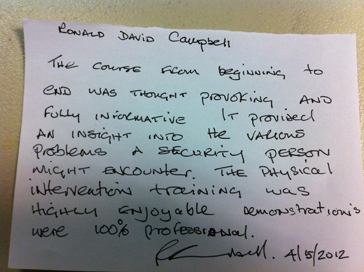 Ronald David Campbell
The course from beginning to
end was thought provoking and
fully informative It provided
an insight into the various
problems a security person
might encounter. The physical
intervention training was
highly enjoyable demonstrations
were 100% professional.
4/5/2012